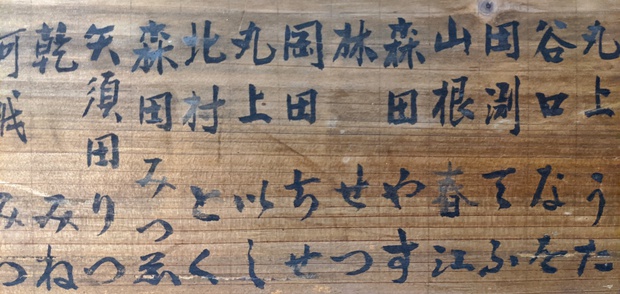 丸上 うた
谷口 なを
田渕 てふ
山根 春江
森田 やす
林 せつ
岡田 ちせ
丸上 いし
北村 とく
森田 みつゑ
矢須田 りつ
乾 みね
みつ